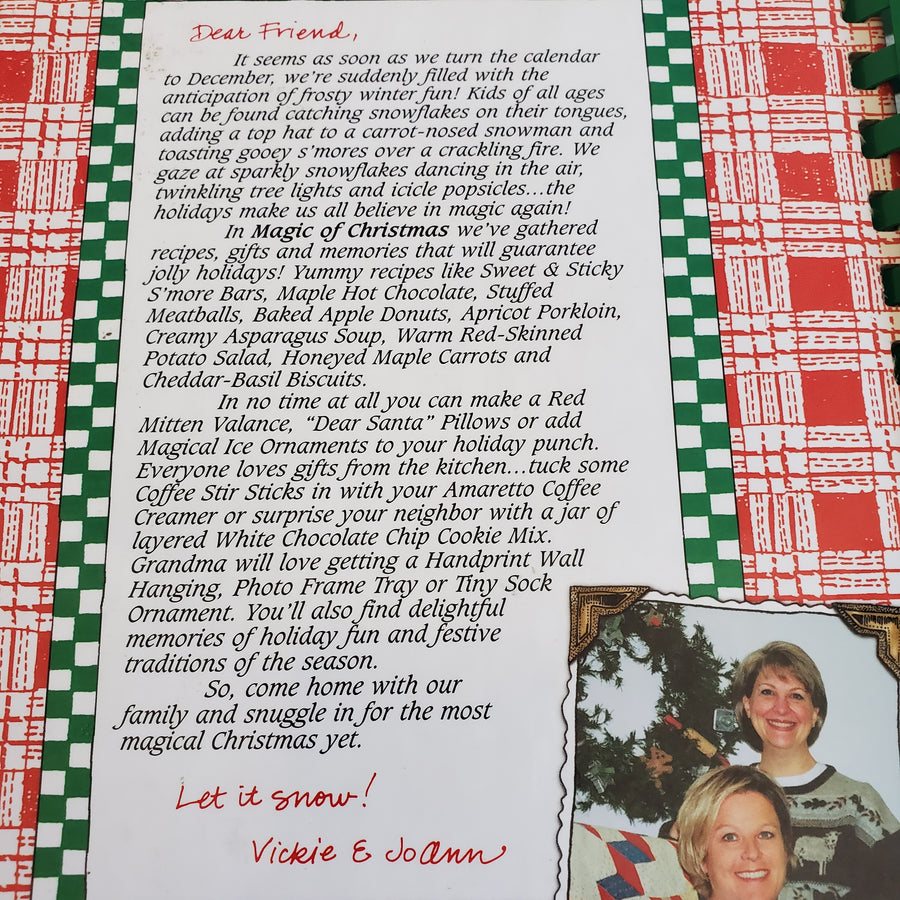 Dear Friend,
It seems as soon as we turn the calendar
to December, we're suddenly filled with the
anticipation of frosty winter fun! Kids of all ages
can be found catching snowflakes on their tongues,
adding a top hat to a carrot-nosed snowman and
toasting gooey s'mores over a crackling fire. We
gaze at sparkly snowflakes dancing in the air,
twinkling tree lights and icicle popsicles...the
holidays make us all believe in magic again!
In Magic of Christmas we've gathered
recipes, gifts and memories that will guarantee
jolly holidays! Yummy recipes like Sweet & Sticky
S'more Bars, Maple Hot Chocolate, Stuffed
Meatballs, Baked Apple Donuts, Apricot Porkloin,
Creamy Asparagus Soup, Warm Red-Skinned
Potato Salad, Honeyed Maple Carrots and
Cheddar-Basil Biscuits.
In no time at all you can make a Red
Mitten Valance, "Dear Santa" Pillows or add
Magical Ice Ornaments to your holiday punch.
Everyone loves gifts from the kitchen...tuck some
Coffee Stir Sticks in with your Amaretto Coffee
Creamer or surprise your neighbor with a jar of
layered White Chocolate Chip Cookie Mix.
Grandma will love getting a Handprint Wall
Hanging, Photo Frame Tray or Tiny Sock
Ornament. You'll also find delightful
memories of holiday fun and festive
traditions of the season.
So, come home with our
family and snuggle in for the most
magical Christmas yet.
Let it snow!
Vickie & JoAnn